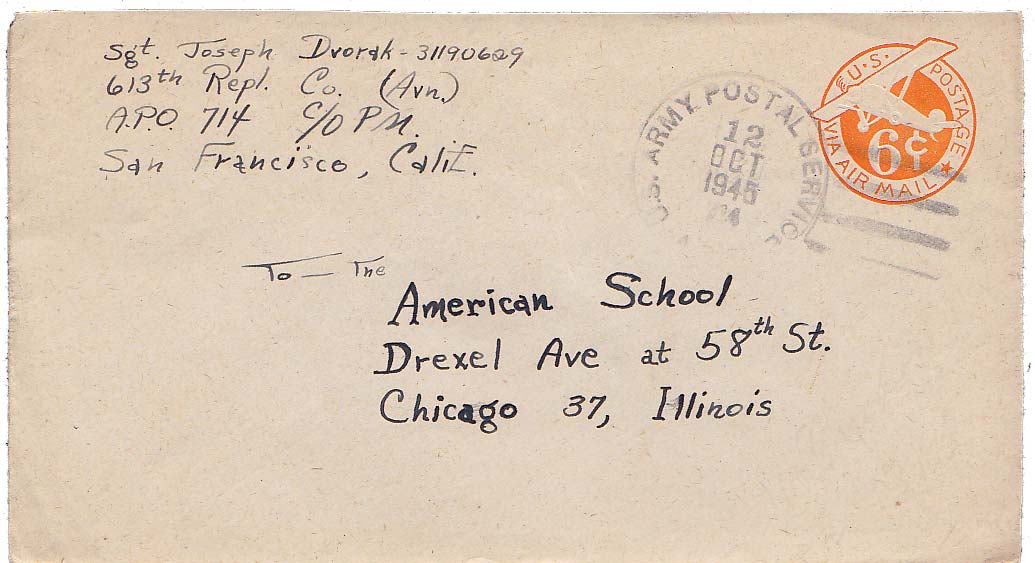 Sgt. Joseph Dvorak - 31190629
613th Repl. Co. (Avn.)
A.P.O. 714 c/o P.M.
San Francisco, Calif.
U.S. ARMY POSTAL SERVICE
12
OCT
1945
U.S. POSTAGE
6¢
VIA AIR MAIL
To - The
American School
Drexel Ave at 58th St.
Chicago 37, Illinois